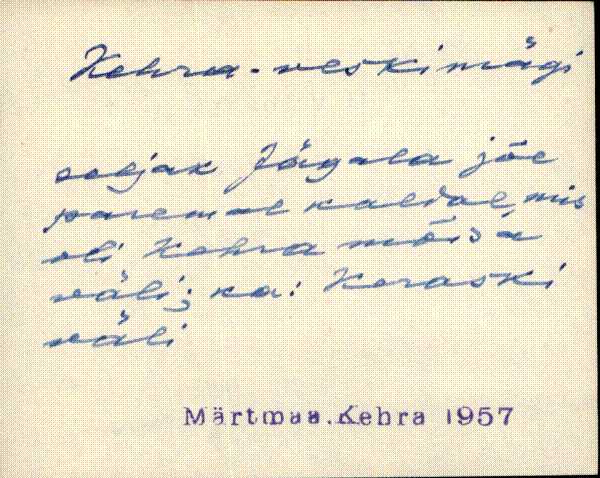 Kehra-veskimägi
seljak Jägala jõe
paremal kaldal, mis
oli Kehra mõisa
väli; ka: Koraski
väli
Märtmaa.Kehra 1957